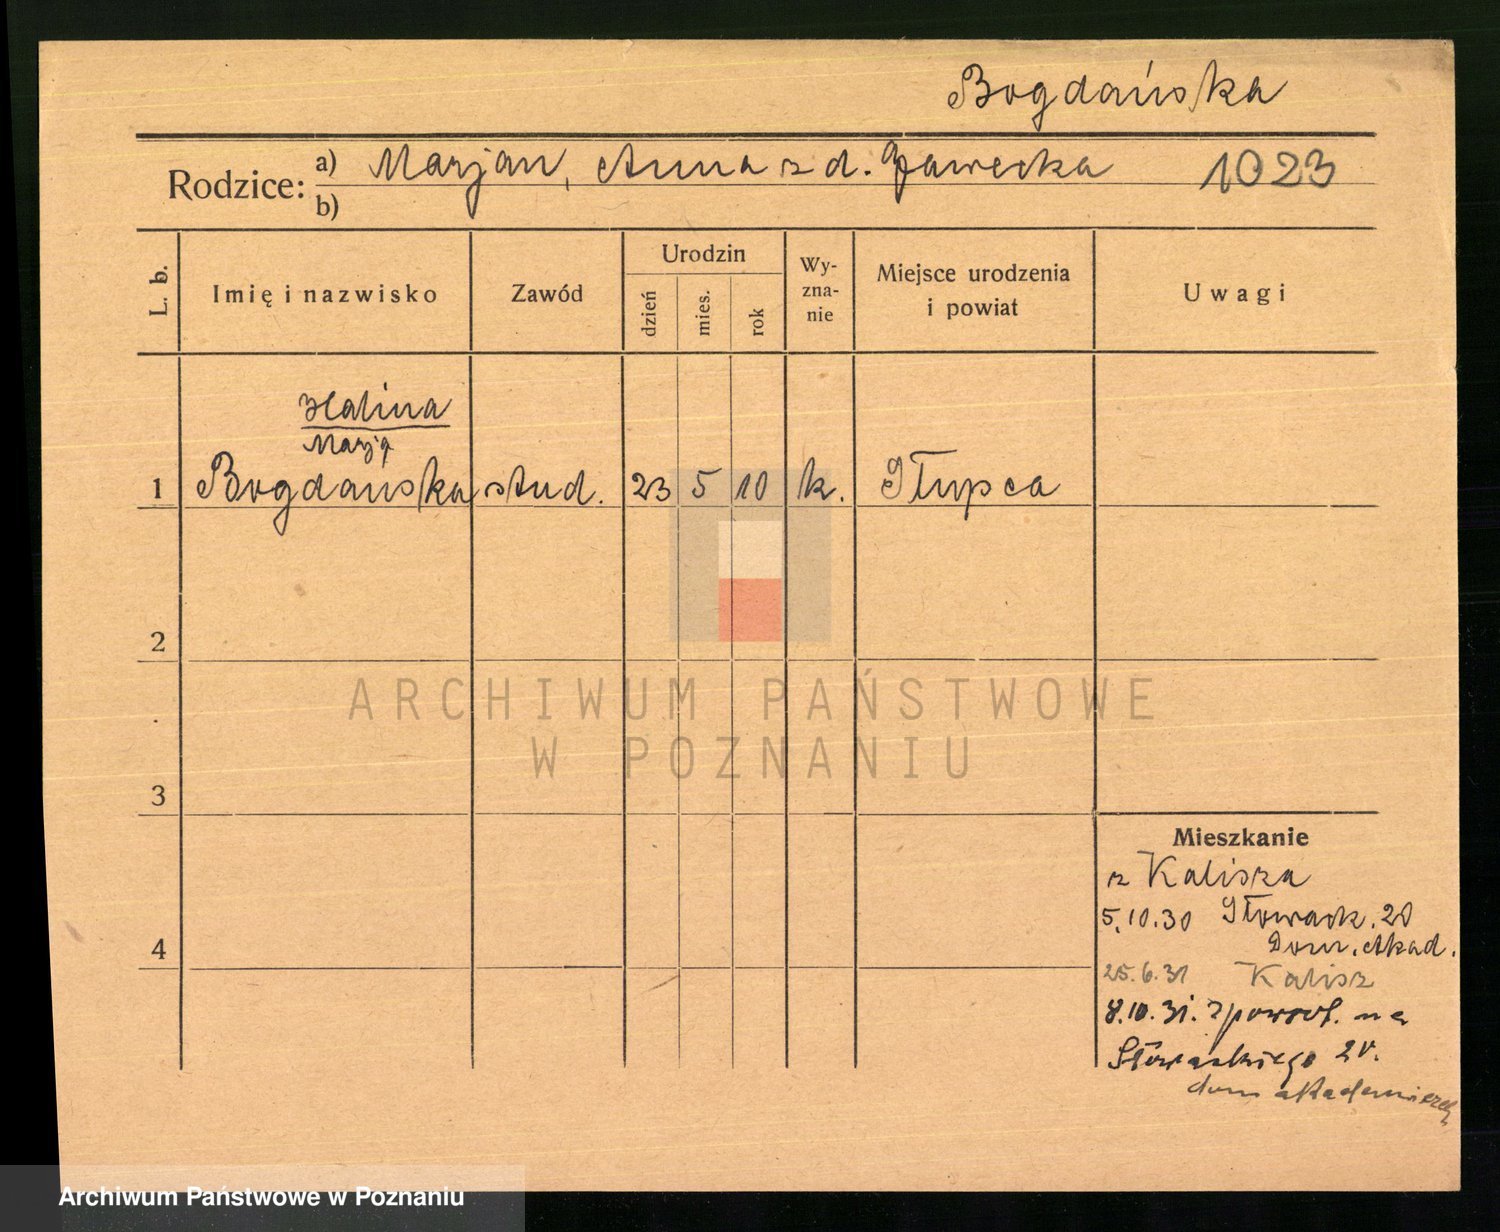 Bogdańska
Rodzice: a) Marjan, Anna z d. Gawecka 1023
b)
L. b. Imię i nazwisko Zawód Urodzin dzień mies. rok Wy-zna-nie Miejsce urodzenia i powiat Uwagi
Halina
Marja
1 Bogdańska stud. 23 5 10 k. Słupca
2
ARCHIWUM PAŃSTWOWE
W POZNANIU
3
Mieszkanie
z Kalisza
5.10.30 Słowack. 20
Dom. Akad.
4
25.6.31 Kalisz
8.10.31. zpowrot. na
Słowackiego 20.
dom akademicki
Archiwum Państwowe w Poznaniu